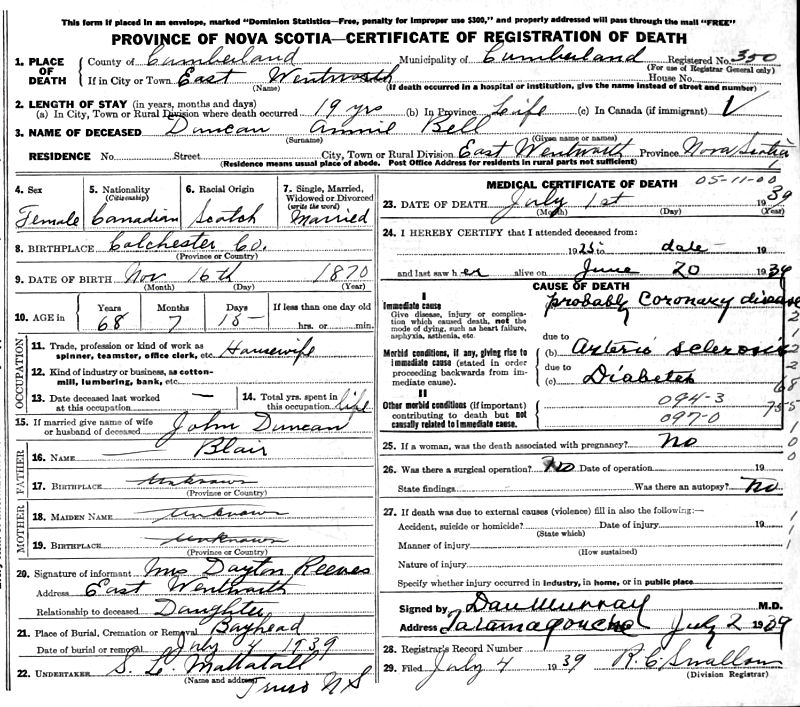 This form if placed in an envelope, marked "Dominion Statistics—Free, penalty for improper use $300," and properly addressed will pass through the mail "FREE"
PROVINCE OF NOVA SCOTIA—CERTIFICATE OF REGISTRATION OF DEATH
1. PLACE OF DEATH County of Cumberland Municipality of Cumberland Registered No. 350
(For use of Registrar General only)
If in City or Town East Wentworth House No.
(Name) (If death occurred in a hospital or institution, give the name instead of street and number)
2. LENGTH OF STAY (in years, months and days)
(a) In City, Town or Rural Division where death occurred 19 yrs (b) In Province Life (c) In Canada (if immigrant) √
3. NAME OF DECEASED Duncan Annie Bell
(Surname) (Given name or names)
RESIDENCE No. Street City, Town or Rural Division East Wentworth Province Nova Scotia
(Residence means usual place of abode. Post Office Address for residents in rural parts not sufficient)
4. Sex Female
5. Nationality (Citizenship) Canadian
6. Racial Origin Scotch
7. Single, Married, Widowed or Divorced (write the word) Married
8. BIRTHPLACE Colchester Co.
(Province or Country)
9. DATE OF BIRTH Nov 16th 1870
(Month) (Day) (Year)
10. AGE in Years 68 Months 7 Days 15 If less than one day old hrs. or min.
OCCUPATION
11. Trade, profession or kind of work as spinner, teamster, office clerk, etc. Housewife
12. Kind of industry or business, as cotton-mill, lumbering, bank, etc.
13. Date deceased last worked at this occupation —
14. Total yrs. spent in this occupation life
15. If married give name of wife or husband of deceased John Duncan
FATHER
16. NAME — Blair
17. BIRTHPLACE Unknown
(Province or Country)
MOTHER
18. MAIDEN NAME Unknown
19. BIRTHPLACE Unknown
(Province or Country)
20. Signature of informant Mrs Dayton Reeves
Address East Wentworth
Relationship to deceased Daughter
21. Place of Burial, Cremation or Removal Bayhead
Date of burial or removal July 4 1939
22. UNDERTAKER S. L. Mattatall
(Name and address) Truro N S
MEDICAL CERTIFICATE OF DEATH 05-11-00
23. DATE OF DEATH July 1st 1939
(Month) (Day) (Year)
24. I HEREBY CERTIFY that I attended deceased from:
to date 19
and last saw her alive on June 20 1939
CAUSE OF DEATH
I
Immediate cause probably Coronary disease
Give disease, injury or complication which caused death, not the mode of dying, such as heart failure, asphyxia, asthenia, etc.
due to
Morbid conditions, if any, giving rise to immediate cause (stated in order proceeding backwards from immediate cause).
(b) Arterio sclerosis
due to
(c) Diabetes
II
Other morbid conditions (if important) contributing to death but not causally related to immediate cause.
094-3
097-0
25. If a woman, was the death associated with pregnancy? No
26. Was there a surgical operation? No Date of operation 19
State findings Was there an autopsy? No
27. If death was due to external causes (violence) fill in also the following:—
Accident, suicide or homicide? Date of injury 19
(State which)
Manner of injury
(How sustained)
Nature of injury
Specify whether injury occurred in industry, in home, or in public place
Signed by Dan Murray M.D.
Address Tatamagouche July 2 1939
28. Registrar's Record Number
29. Filed July 4 1939 R. C. Swallow
(Division Registrar)